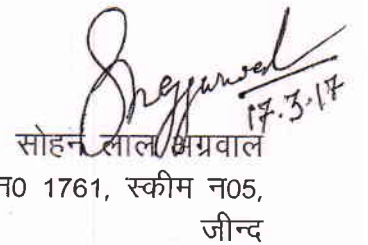 17.3.17
सोहन लाल अग्रवाल
न0 1761, स्कीम न05,
जीन्द